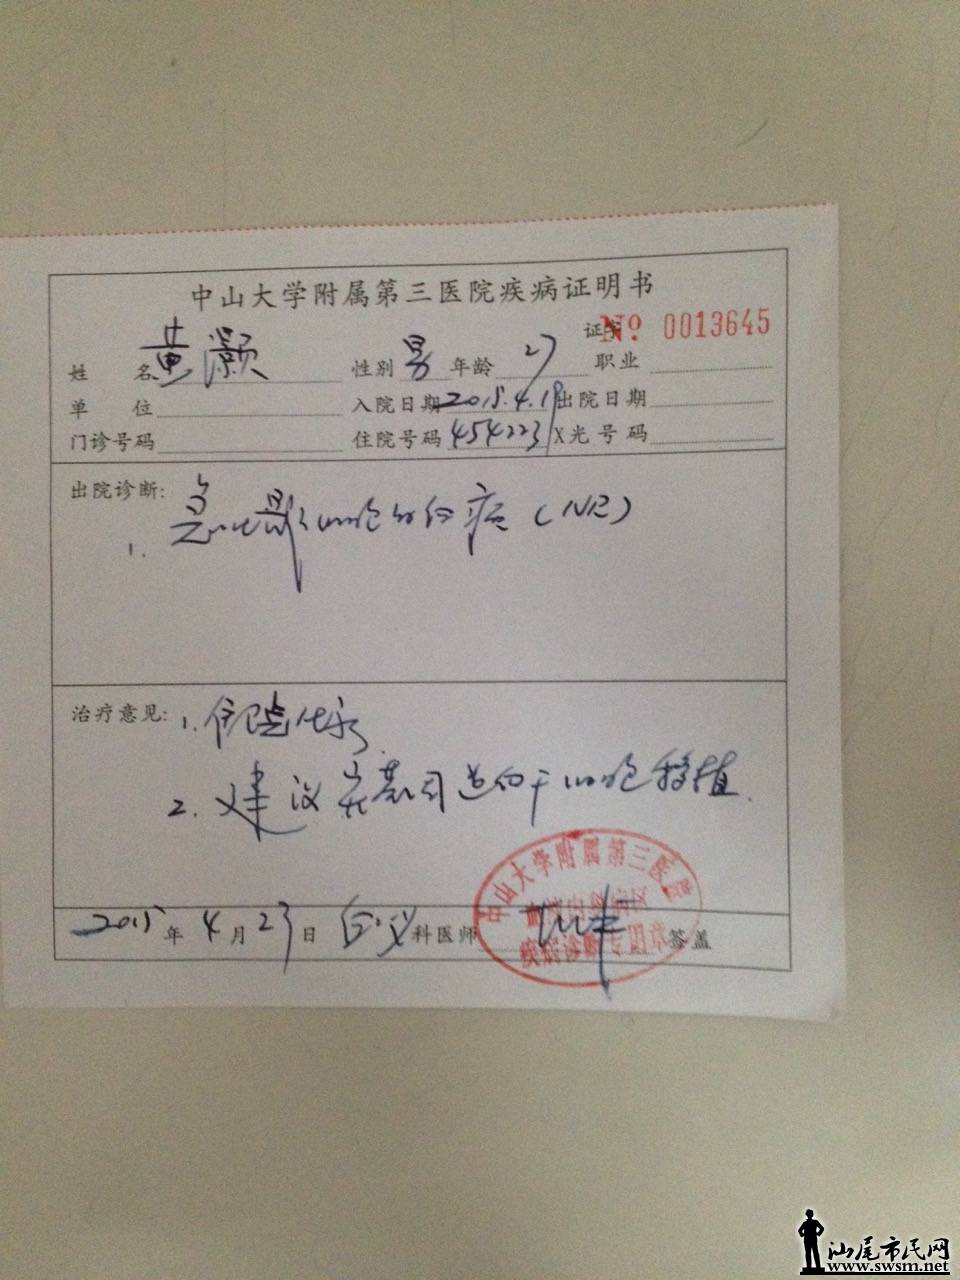 中山大学附属第三医院疾病证明书
证字 № 0013645
姓 名 黄灏 性别 男 年龄 27 职业
单 位 入院日期 2015.4.19 出院日期
门诊号码 住院号码 454223 X光号码
出院诊断:
1. 急性 细胞白血病
治疗意见: 1. 住院化疗
2. 建议 造血干细胞移植.
2015年4月23日 科医师 签盖
中山大学附属第三医院
疾病诊断专用章
汕尾市民网
www.swsm.net